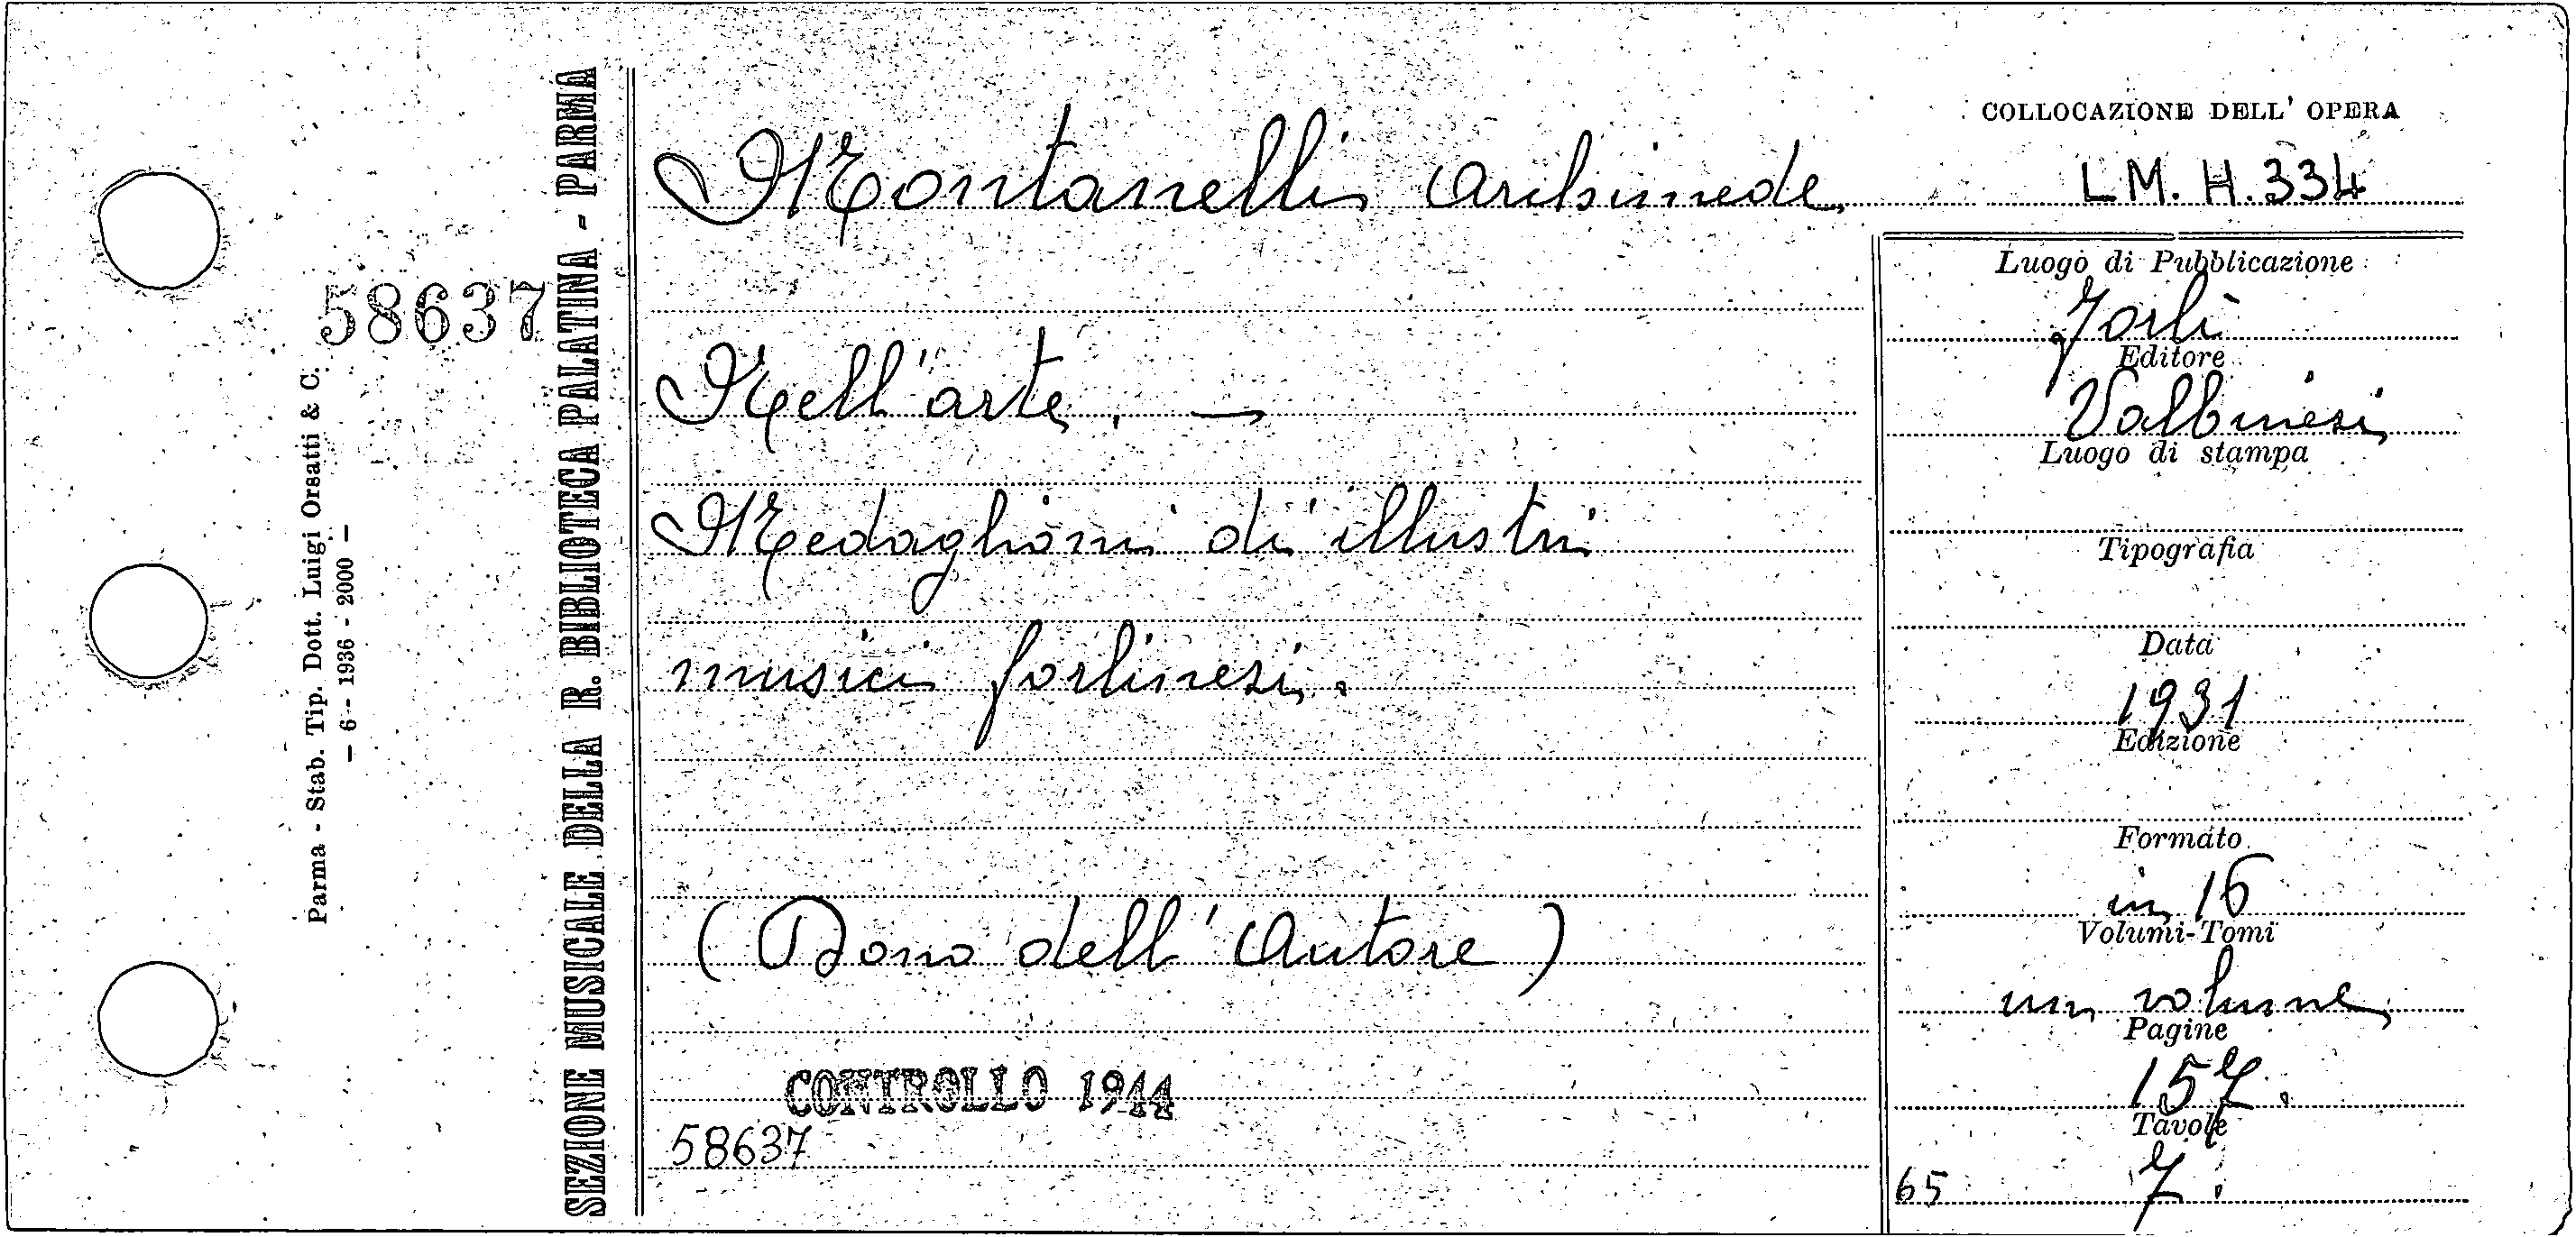 COLLOCAZIONE DELL' OPERA
Montanelli Archimede
L M. H. 334
58637
Parma - Stab. Tip. Dott. Luigi Orsatti & C.
— 6 - 1936 - 2000 —
SEZIONE MUSICALE DELLA R. BIBLIOTECA PALATINA - PARMA
Nell'arte. —
Medaglioni di illustri
musici forlinesi.
(Dono dell'Autore)
CONTROLLO 1944
58637
Luogo di Pubblicazione
Forlì
Editore
Valbonesi
Luogo di stampa
Tipografia
Data
1931
Edizione
Formato
in 16
Volumi-Tomi
un volume
Pagine
157.
Tavole
7.
65